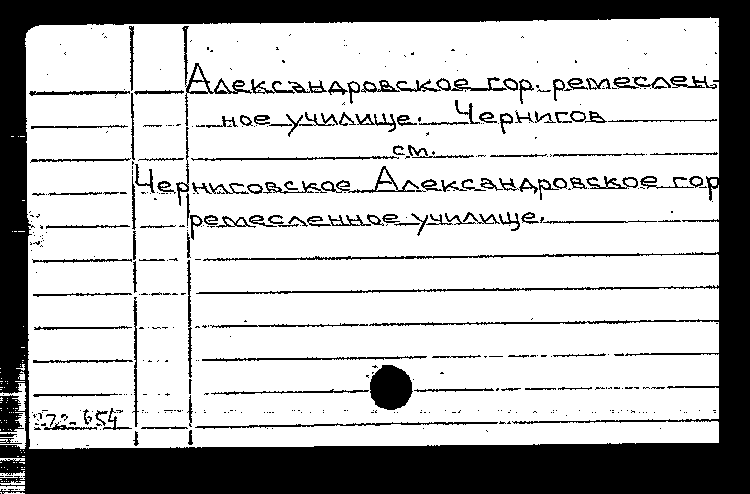 Александровское гор. ремеслен-
ное училище. Чернигов
см.
Черниговское Александровское гор
ремесленное училище.
272-654